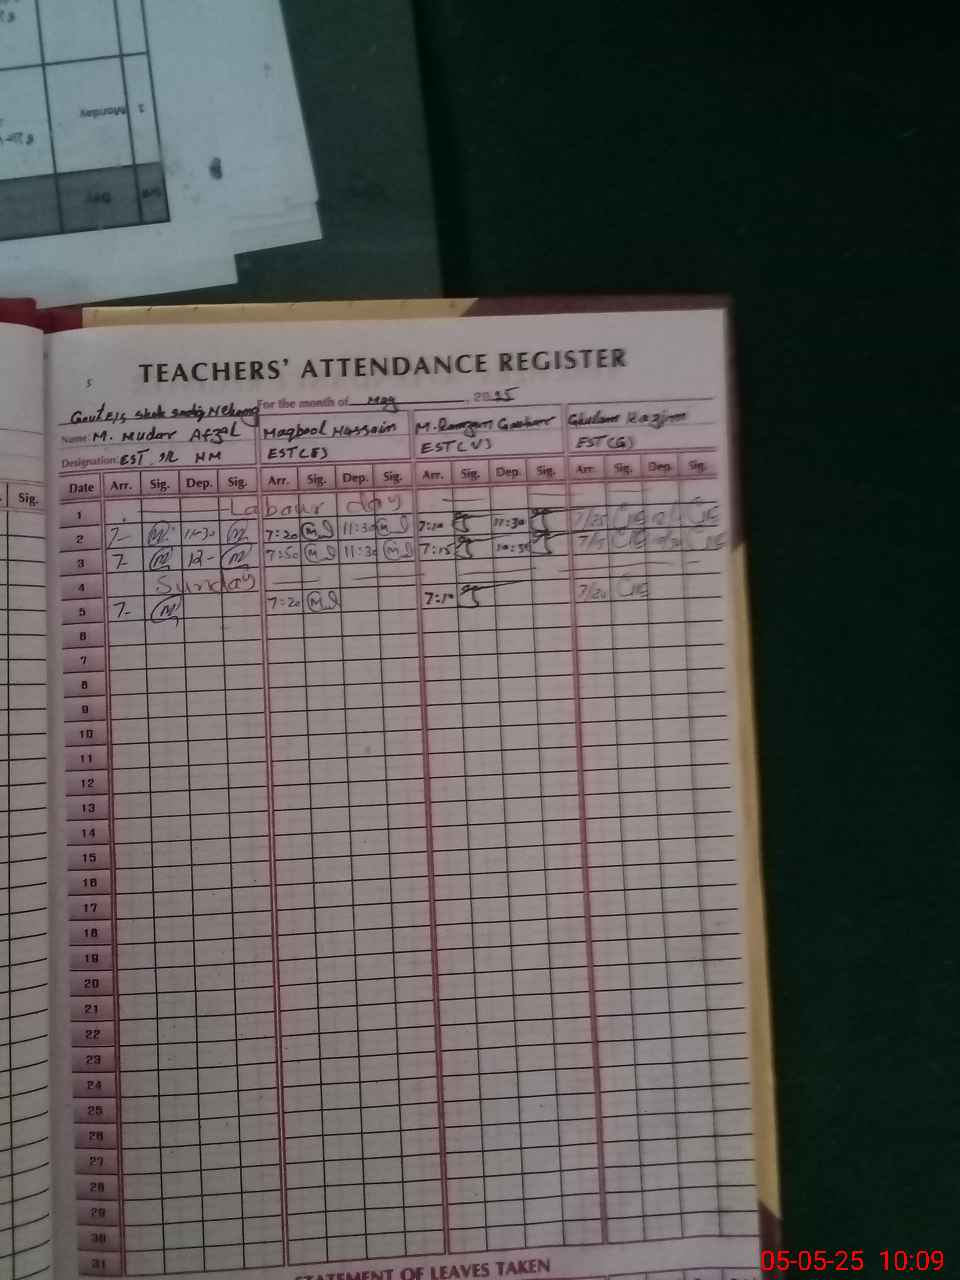 Monday
1
Day
TEACHERS' ATTENDANCE REGISTER
5
For the month of May, 2025
Name: M. Mudar Afzal Maqbool Hussain M. Ghulam Kazim
Designation: EST SR HM EST(E) EST(V) EST(G)
Sig.
Date Arr. Sig. Dep. Sig. Arr. Sig. Dep. Sig. Arr. Sig. Dep. Sig. Arr. Sig. Dep. Sig.
1 Labour day
2 7- 11-30 7:20 11:30 7:10 11:30 7/25
3 7- 12- 7:50 11:30 7:15 10:30
4 Sunday
5 7- 7:20 7:10 7/20
6
7
8
9
10
11
12
13
14
15
16
17
18
19
20
21
22
23
24
25
26
27
28
29
30
31
STATEMENT OF LEAVES TAKEN
05-05-25 10:09